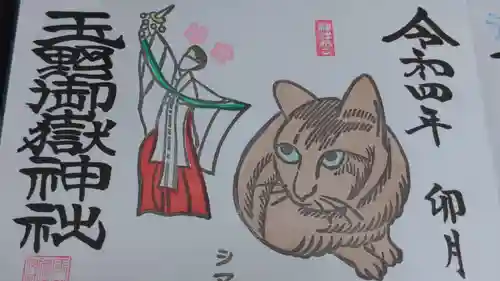 令和四年 卯月
シマ
玉野御嶽神社